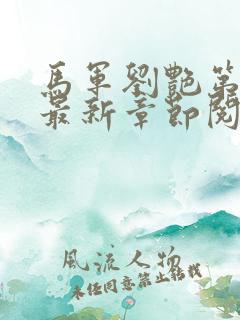 馬軍劉艷第
最新章節閱
風流人物
未经同意禁止转载